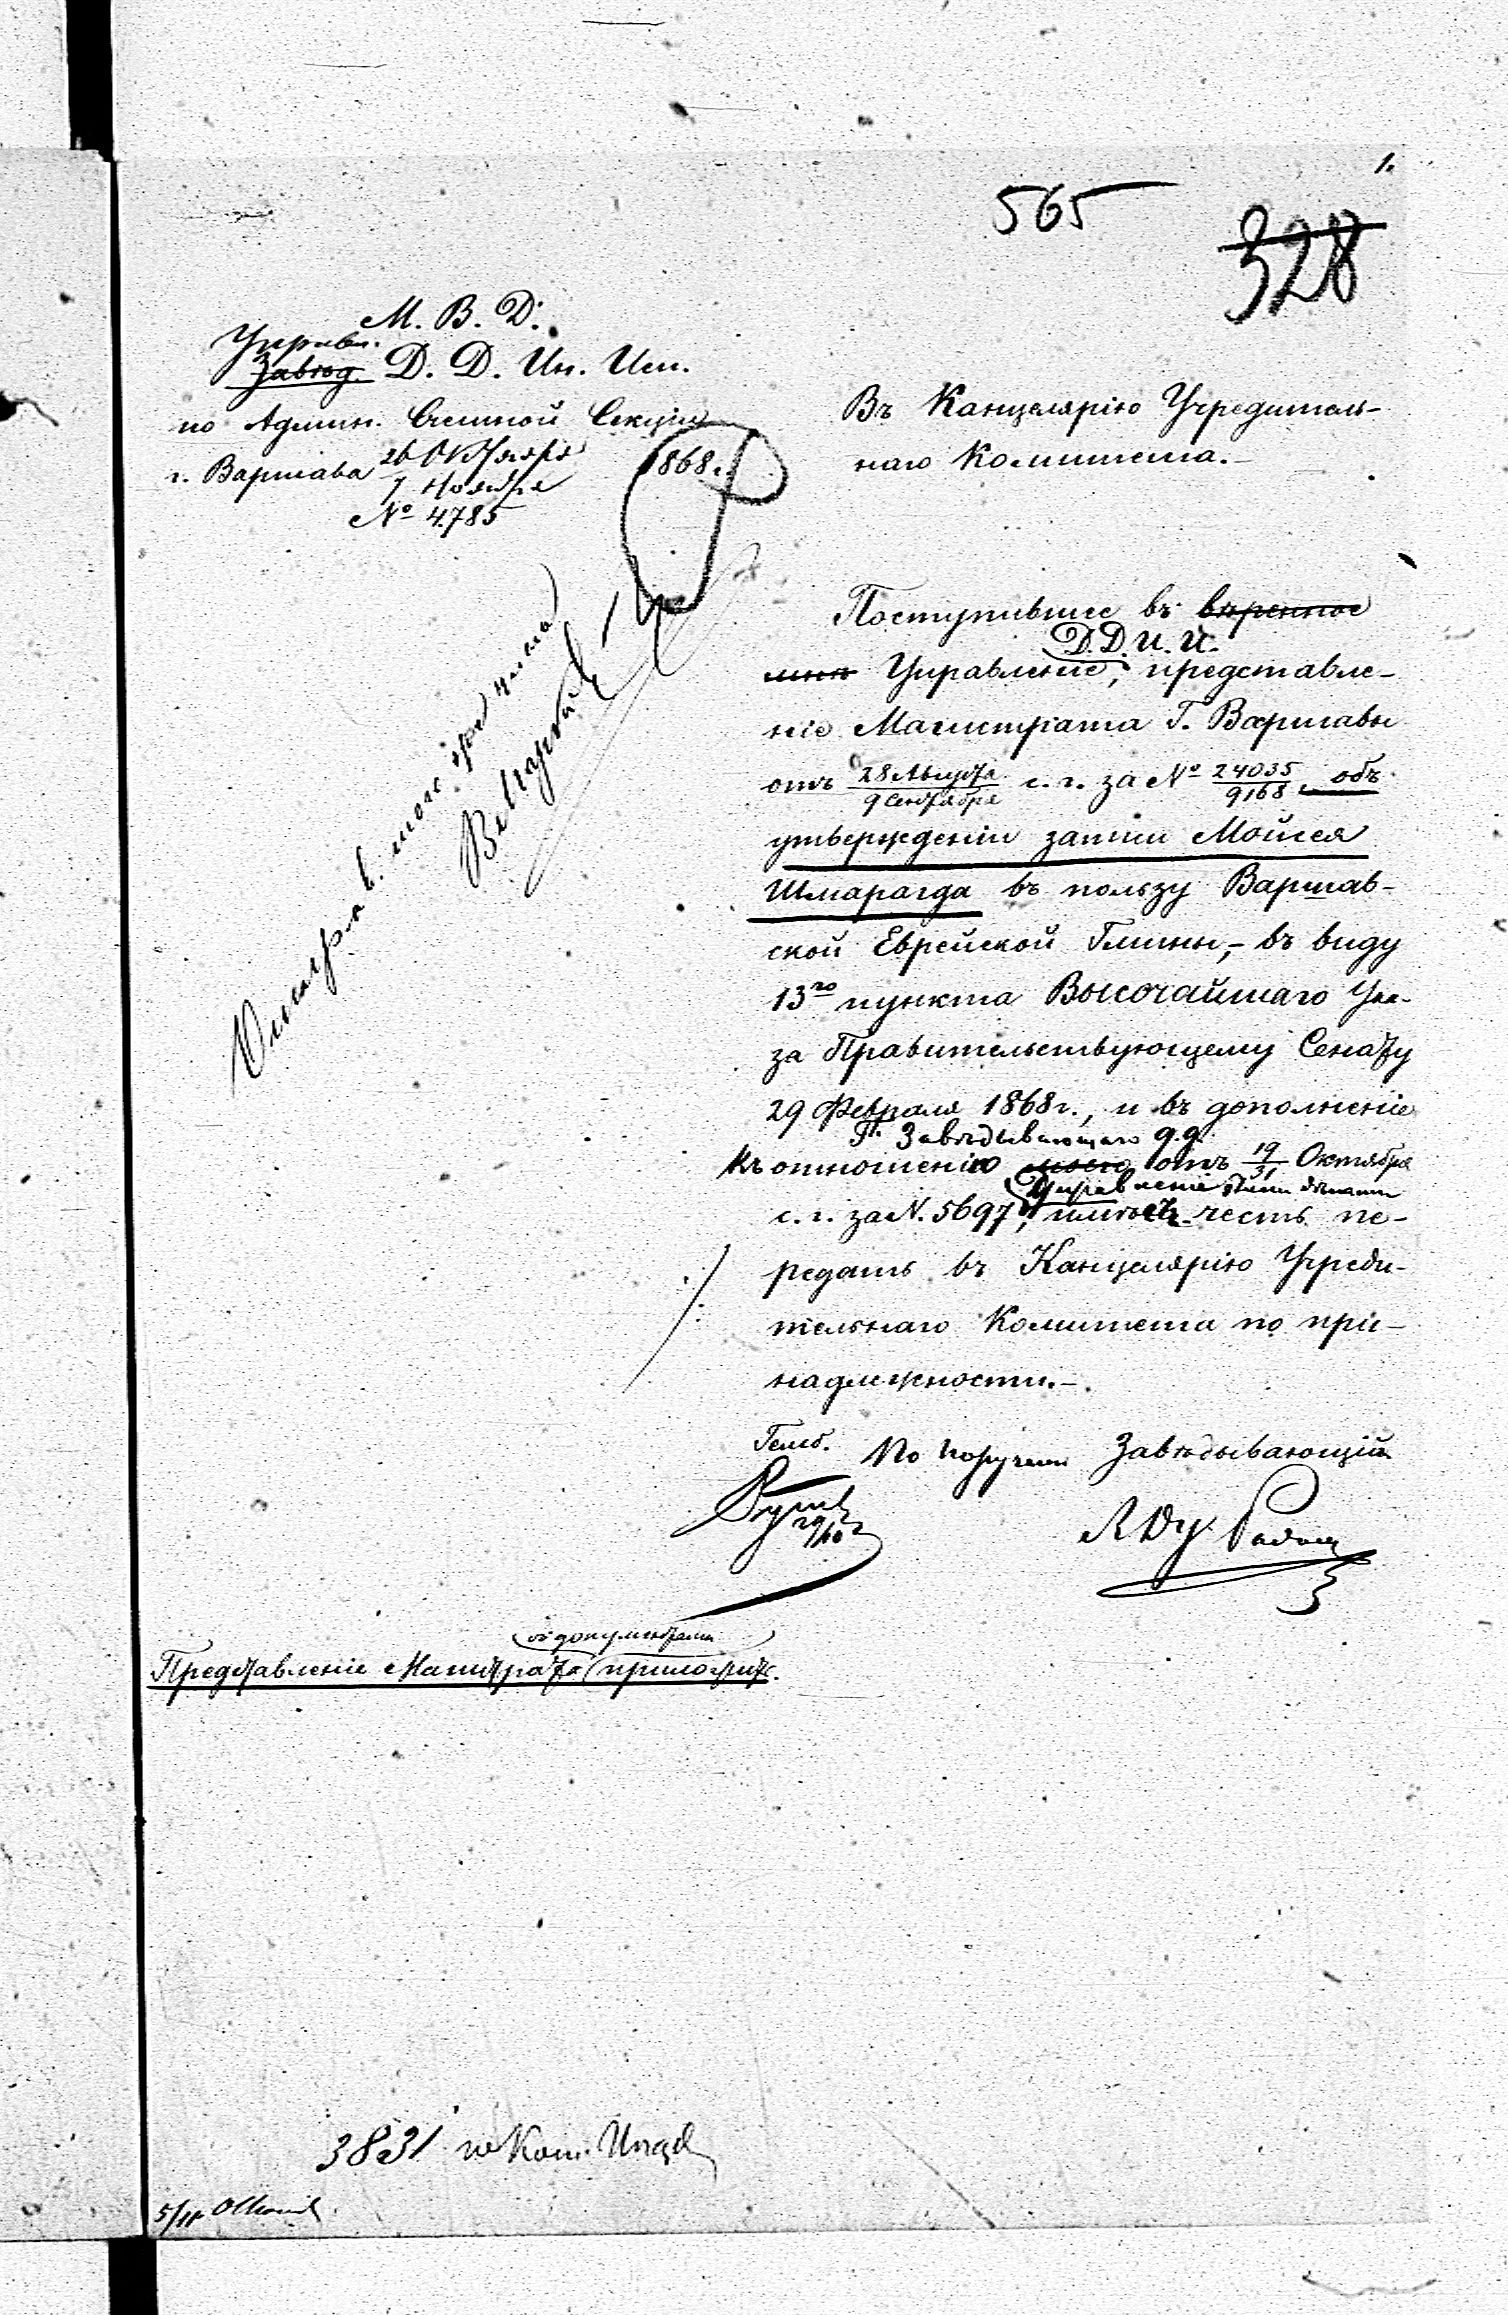 1.
565
328
М. В. Д.
Управл.
Завѣд. Д. Д. Ин. Исп.
по Админ. Счетной Секціи
г. Варшава 26 Октября 1868 г.
7 Ноября
№ 4785
Въ Канцелярію Учредитель-
наго Комитета.-
Поступившее въ ввѣренное
Д. Д. И. И.
мнѣ Управленіе, представле-
ніе Магистрата Г. Варшавы
отъ 28 Августа с. г. за № 24035 объ
9 Сентября 9168
утвержденіи записи Мойсея
Шмарагда въ пользу Варшав-
ской Еврейской Гмины,- въ виду
13го пункта Высочайшаго Ука-
за Правительствующему Сенату
29 Февраля 1868 г., и въ дополненіе
Г. Завѣдывающаго д. д.
къ отношенію моего отъ 19/31 Октября
Управленіе дѣлами
с. г. за N. 5697, имѣетъ честь пе-
редать въ Канцелярію Учреди-
тельнаго Комитета по при-
надлежности.-
По порученію Завѣдывающій
29/10
съ документами
Представленіе Магистрата прилагается.
3831
5/11